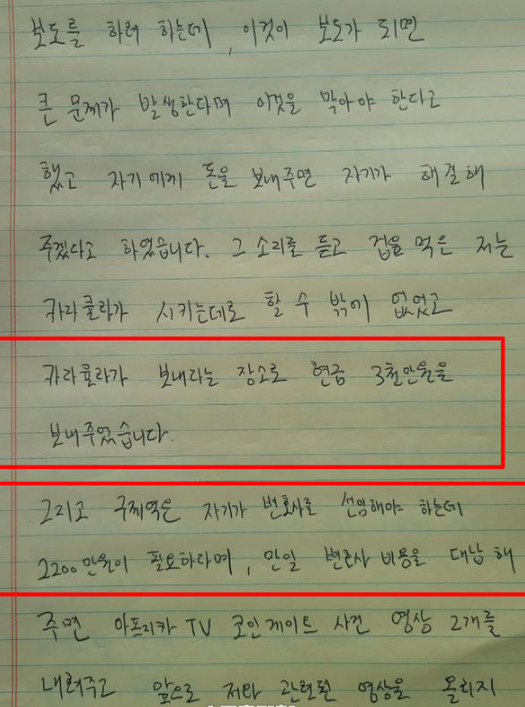 보도를 하려 하는데, 이것이 보도가 되면
큰 문제가 발생한다며 이것을 막아야 한다고
했고 자기에게 돈을 보내주면 자기가 해결해
주겠다고 하였습니다. 그 소리를 듣고 겁을 먹은 저는
카라큘라가 시키는데로 할 수 밖에 없었고
카라큘라가 보내라는 장소로 현금 3천만원을
보내주었습니다.
그리고 구제역은 자기가 변호사를 선임해야 하는데
2200만원이 필요하다며, 만일 변호사 비용을 대납해
주면 아프리카 TV 코인게이트 사건 영상 2개를
내려주고 앞으로 저와 관련된 영상을 올리지